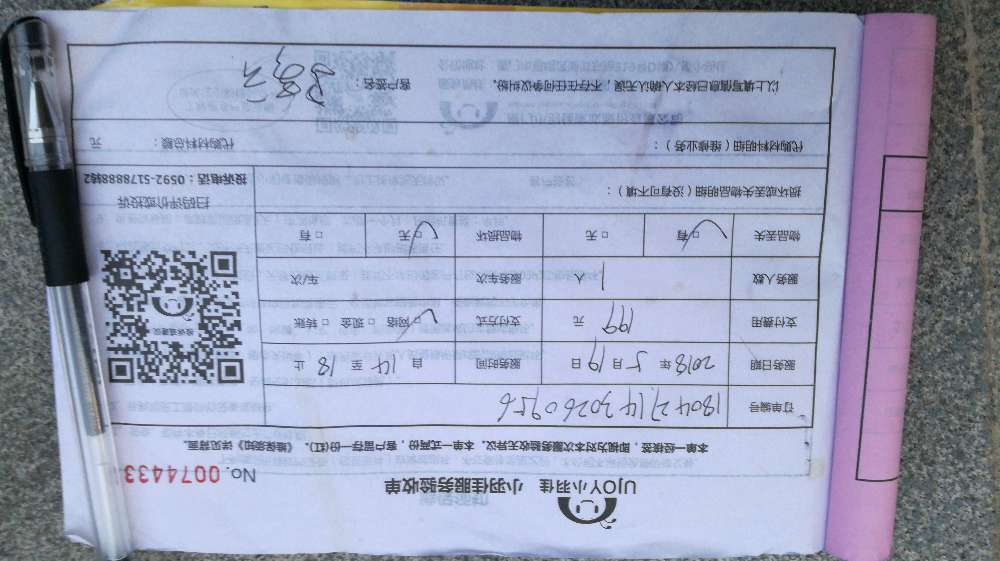 UJOY小羽佳 小羽佳服务验收单
No. 0074433
本单一经核签，即视为对本次服务验收无异议。本单一式两份，客户留存一份(红)。《维保须知》详见背面。
订单编号
服务日期 2018 年 5 月 19 日 服务时间 自 14 至 18 止
支付费用 199 元 支付方式 网络 □ 现金 □ 转账
服务人数 1 人 服务车次 车/次
物品丢失 □ 有 □ 无 物品损坏 □ 无 □ 有
投诉或建议
扫码评价或投诉
投诉电话：0592-5178888转2
损坏或丢失物品明细（没有可不填）：
代购材料明细（维修业务）： 代购材料总额： 元
以上填写信息已经本人确认无误，不存在任何争议纠纷。 客户签名：